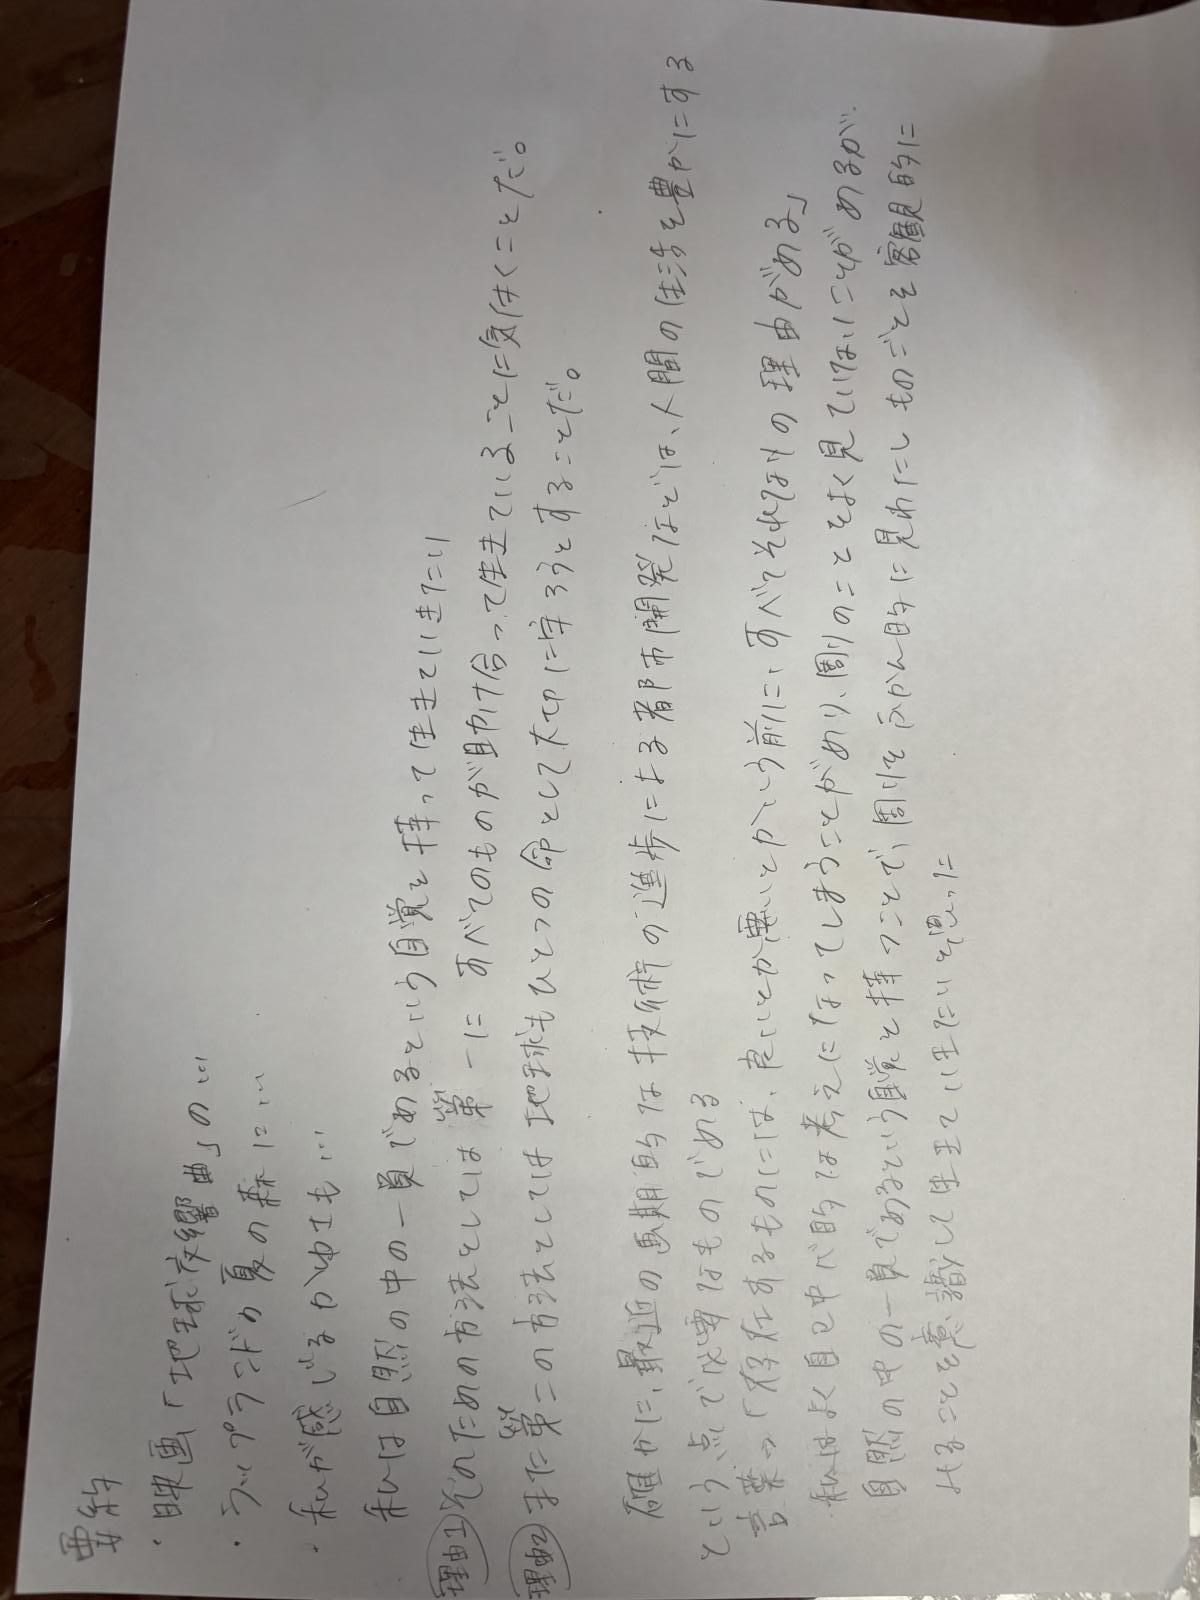 要約
・映画「地球交響曲」の…
・ラップランドの夏の森に…
・私が感じるかゆさも…
私は自然の中の一員であるという自覚を持って生きていきたい
理由1 そのための方法としては第一にすべてのものが助け合って生きていることに気付くことだ。
理由2 また第二の方法としては地球もひとつの命として大切に守ろうとすることだ。
確かに、最近の画期的な技術の進歩による都市開発などは、人間の生活を豊かにする
という点で必要なものである
言葉→「存在するものには、良いとか悪いとかいう前に、すべてそれなりの理由がある」
私はよく自己中心的な考えになってしまうことがあり、周りのことをよく見ていないことがあるが
自然の中の一員であるという自覚を持つことで、周りをふかん的に見わたしものごとを客観的に
みることを意識して生きていきたいと思った